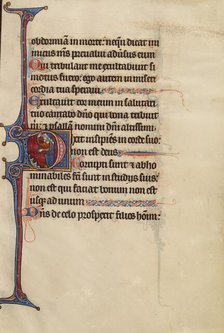 obdormiam in morte: nequn dicat in
imicus meus prevalui adversus eum
Qui tribulant me exultabunt si
motus fuero: ego autem in miseri
cordia tua speravi
Exultavit cor meum in salutari
tuo cantabo domino qui bona tribuit
mi: et psallam nomini domini altissimi
Dixit insipiens in corde suo
non est deus
Corrupti sunt et abho
minabiles facti sunt in studiis suis:
non est qui faciat bonum non est
usque ad unum
Dns de celo prospexit super filios hominum